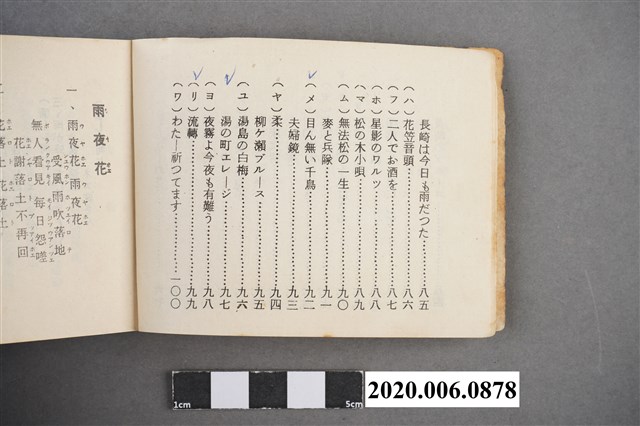 長崎は今日も雨だつた………八五
(ハ)花笠音頭………八六
(フ)二人でお酒を………八七
(ホ)星影のワルツ………八八
(マ)松の木小唄………八九
(ム)無法松の一生………九〇
麥と兵隊………九一
(メ)目ん無い千鳥………九二
夫婦鏡………九三
(ヤ)柔………九四
柳ケ瀬ブルース………九五
(ユ)湯島の白梅………九六
湯の町エレージ………九七
(ヨ)夜霧よ今夜も有難う………九八
(リ)流轉………九九
(ワ)わたー祈つてます………一〇〇
雨夜花
一、雨夜花 雨夜花
受風雨吹落地
無人看見 每日怨嗟
花謝落土不再回
花落土 花落土
1cm
5cm
2020.006.0878